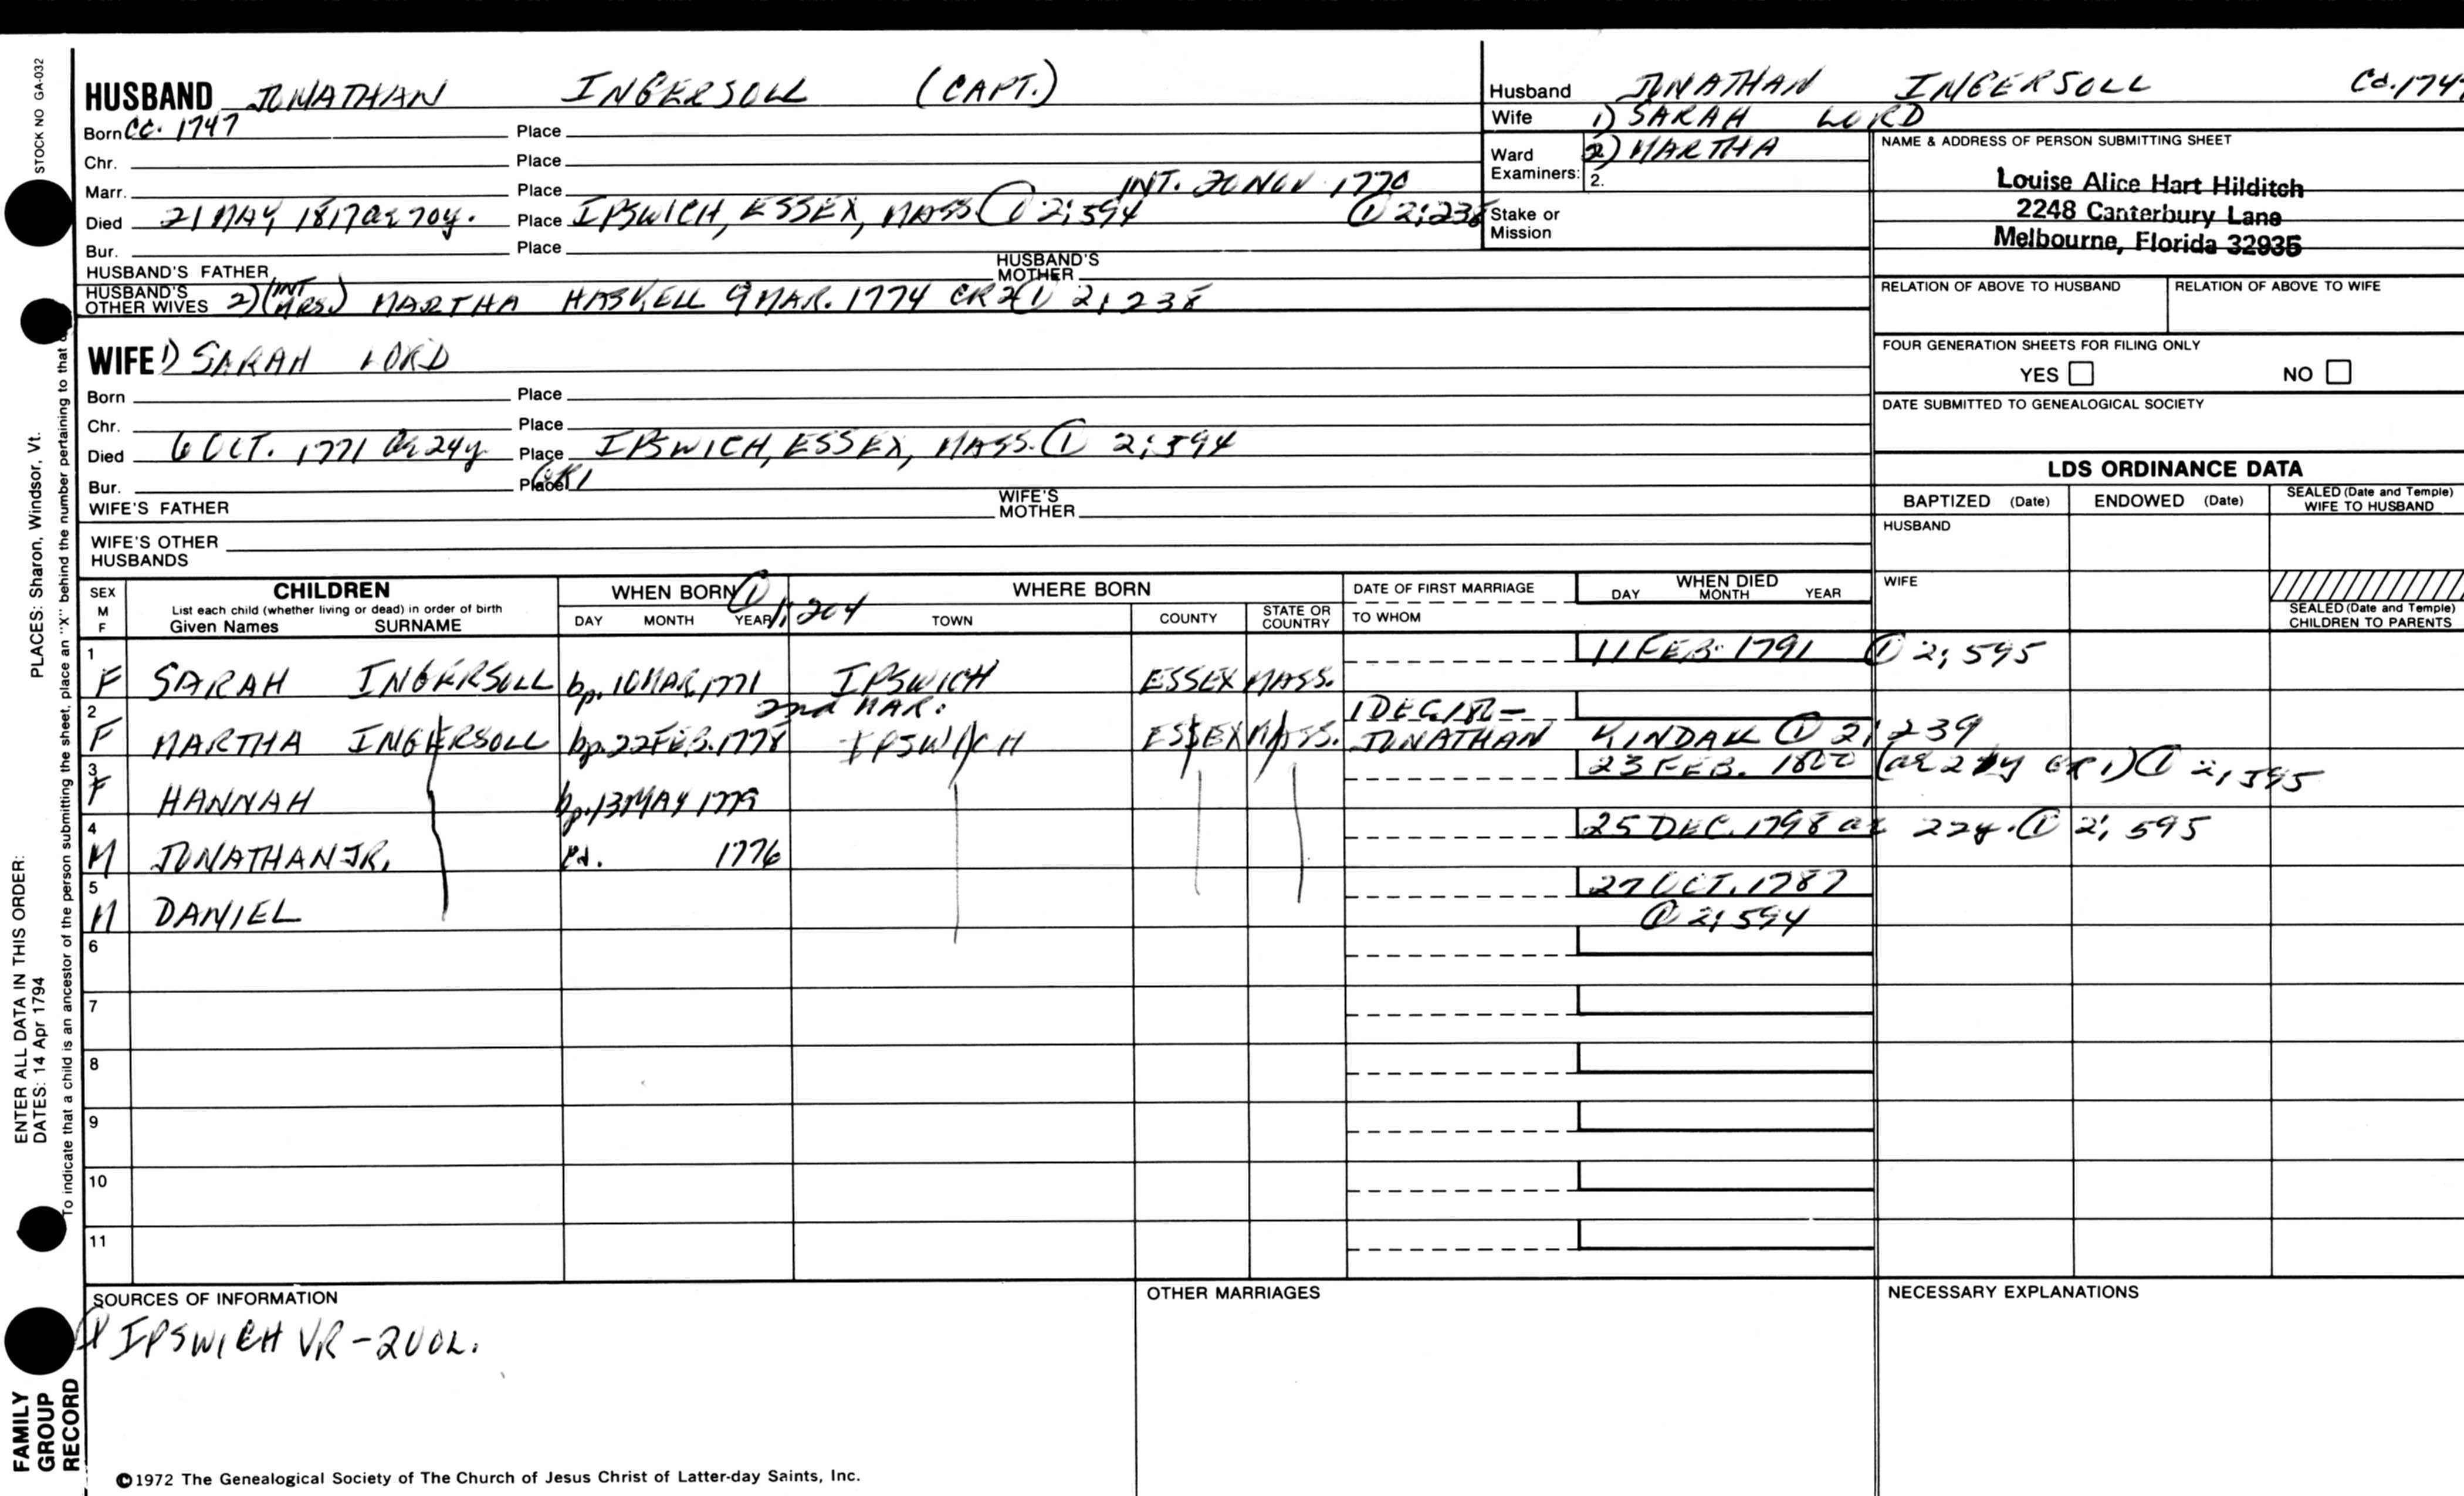 STOCK NO GA-032
HUSBAND JONATHAN INGERSOLL (CAPT.)
Born Ca. 1747 Place
Chr. Place
Marr. Place INT. 20 NOV 1770
Died 21 MAY 1817 ae 70y. Place IPSWICH, ESSEX, MASS. ① 2; 594 ① 2; 238
Bur. Place
HUSBAND'S FATHER HUSBAND'S MOTHER
HUSBAND'S OTHER WIVES 2) (INT MRS.) MARTHA HASKELL 9 MAR. 1774 CR2 ① 2; 238
WIFE 1) SARAH LORD
Born Place
Chr. Place
Died 6 OCT. 1771 ae 24y. Place IPSWICH, ESSEX, MASS. ① 2; 594
Bur. Place GR1
WIFE'S FATHER WIFE'S MOTHER
WIFE'S OTHER HUSBANDS
Husband JONATHAN INGERSOLL Ca. 1747
Wife 1) SARAH LORD
Ward 2) MARTHA
Examiners: 2.
Stake or Mission
NAME & ADDRESS OF PERSON SUBMITTING SHEET
Louise Alice Hart Hilditch
2248 Canterbury Lane
Melbourne, Florida 32935
RELATION OF ABOVE TO HUSBAND RELATION OF ABOVE TO WIFE
FOUR GENERATION SHEETS FOR FILING ONLY
YES NO
DATE SUBMITTED TO GENEALOGICAL SOCIETY
LDS ORDINANCE DATA
BAPTIZED (Date) ENDOWED (Date) SEALED (Date and Temple) WIFE TO HUSBAND
HUSBAND
WIFE
SEALED (Date and Temple) CHILDREN TO PARENTS
SEX M F
CHILDREN
List each child (whether living or dead) in order of birth
Given Names SURNAME
WHEN BORN ① 1; 204
DAY MONTH YEAR
WHERE BORN
TOWN COUNTY STATE OR COUNTRY
DATE OF FIRST MARRIAGE
TO WHOM
WHEN DIED
DAY MONTH YEAR
1 F SARAH INGERSOLL bp. 10 MAR. 1771 IPSWICH ESSEX MASS. 11 FEB. 1791 ① 2; 595
2nd MAR.
2 F MARTHA INGERSOLL bp. 22 FEB. 1778 IPSWICH ESSEX MASS. 1 DEC. JONATHAN ① 2; 239
3 F HANNAH bp. 13 MAY 1779 23 FEB. 1800 GR1) ① 2; 595
4 M JONATHAN JR. Ca. 1776 25 DEC. 1798 ae 22y. ① 2; 595
5 M DANIEL 27 OCT. 1787
① 2; 594
6
7
8
9
10
11
SOURCES OF INFORMATION
① IPSWICH VR - 2 VOL.
OTHER MARRIAGES
NECESSARY EXPLANATIONS
©1972 The Genealogical Society of The Church of Jesus Christ of Latter-day Saints, Inc.
ENTER ALL DATA IN THIS ORDER:
DATES: 14 Apr 1794
PLACES: Sharon, Windsor, Vt.
To indicate that a child is an ancestor of the person submitting the sheet, place an "X" behind the number pertaining to that
FAMILY
GROUP
RECORD